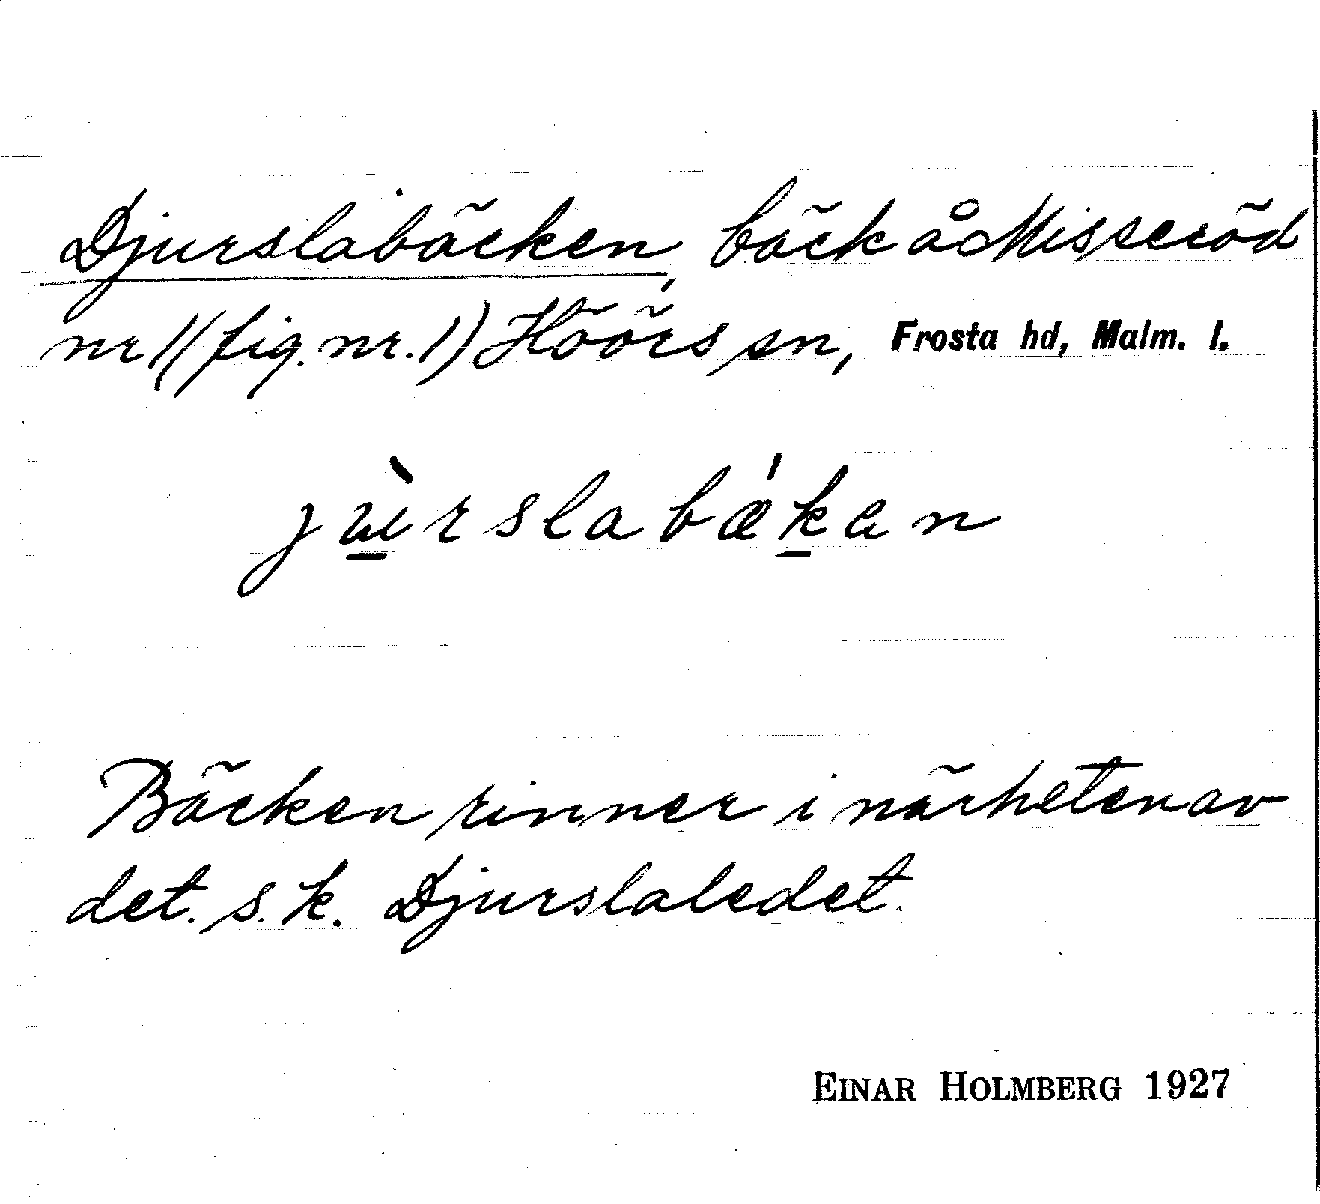 Djurslabäcken, bäck å Misseröd
nr 1 (fig. nr. 1) Höörs sn, Frosta hd, Malm. l.
jùrslabǽkan
Bäcken rinner i närheten av
det. s. k. Djurslaledet.
EINAR HOLMBERG 1927